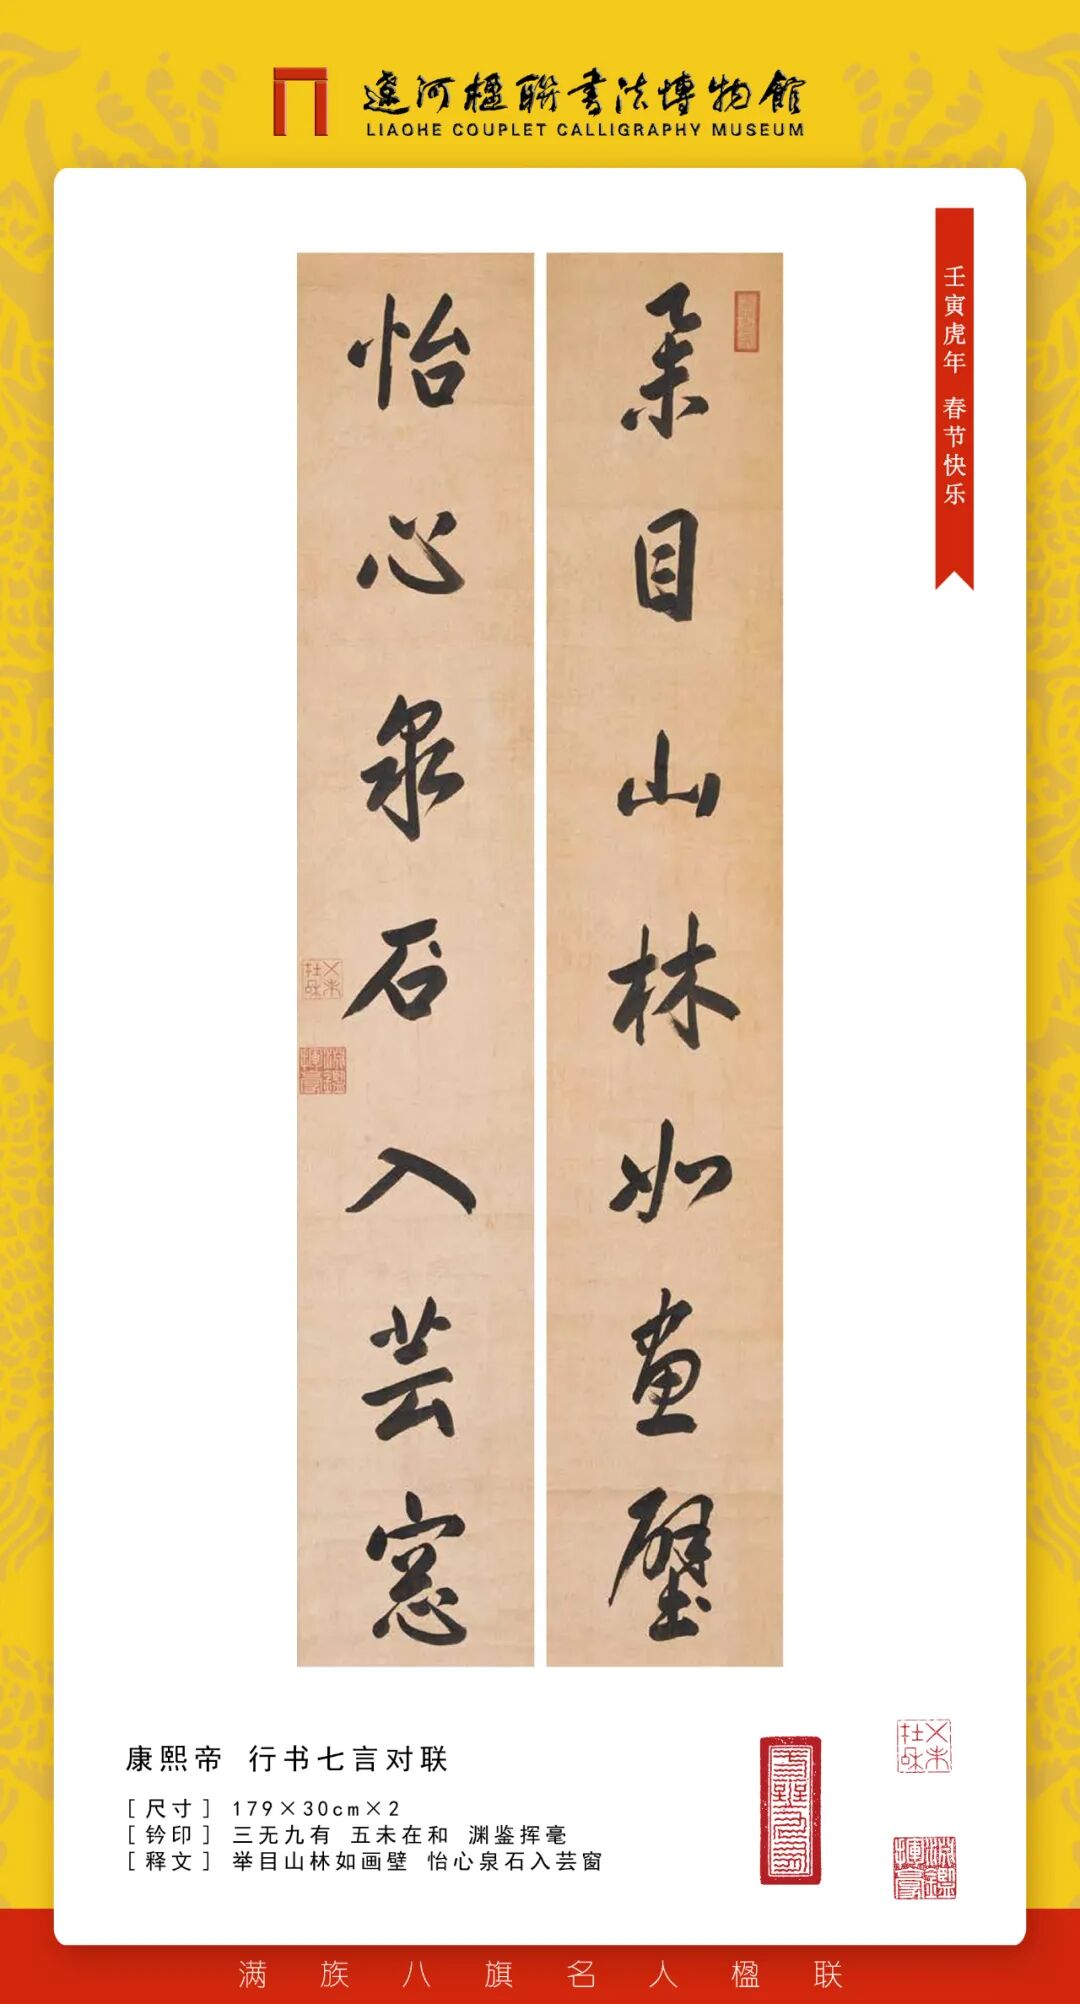 遼河楹聯書法博物館
LIAOHE COUPLET CALLIGRAPHY MUSEUM
壬寅虎年 春节快乐
举目山林如画壁
怡心泉石入芸窓
康熙帝 行书七言对联
[尺寸] 179×30cm×2
[钤印] 三无九有 五未在和 渊鉴挥毫
[释文] 举目山林如画壁 怡心泉石入芸窗
㐅未在和
渊鑑挥毫
满族八旗名人楹联